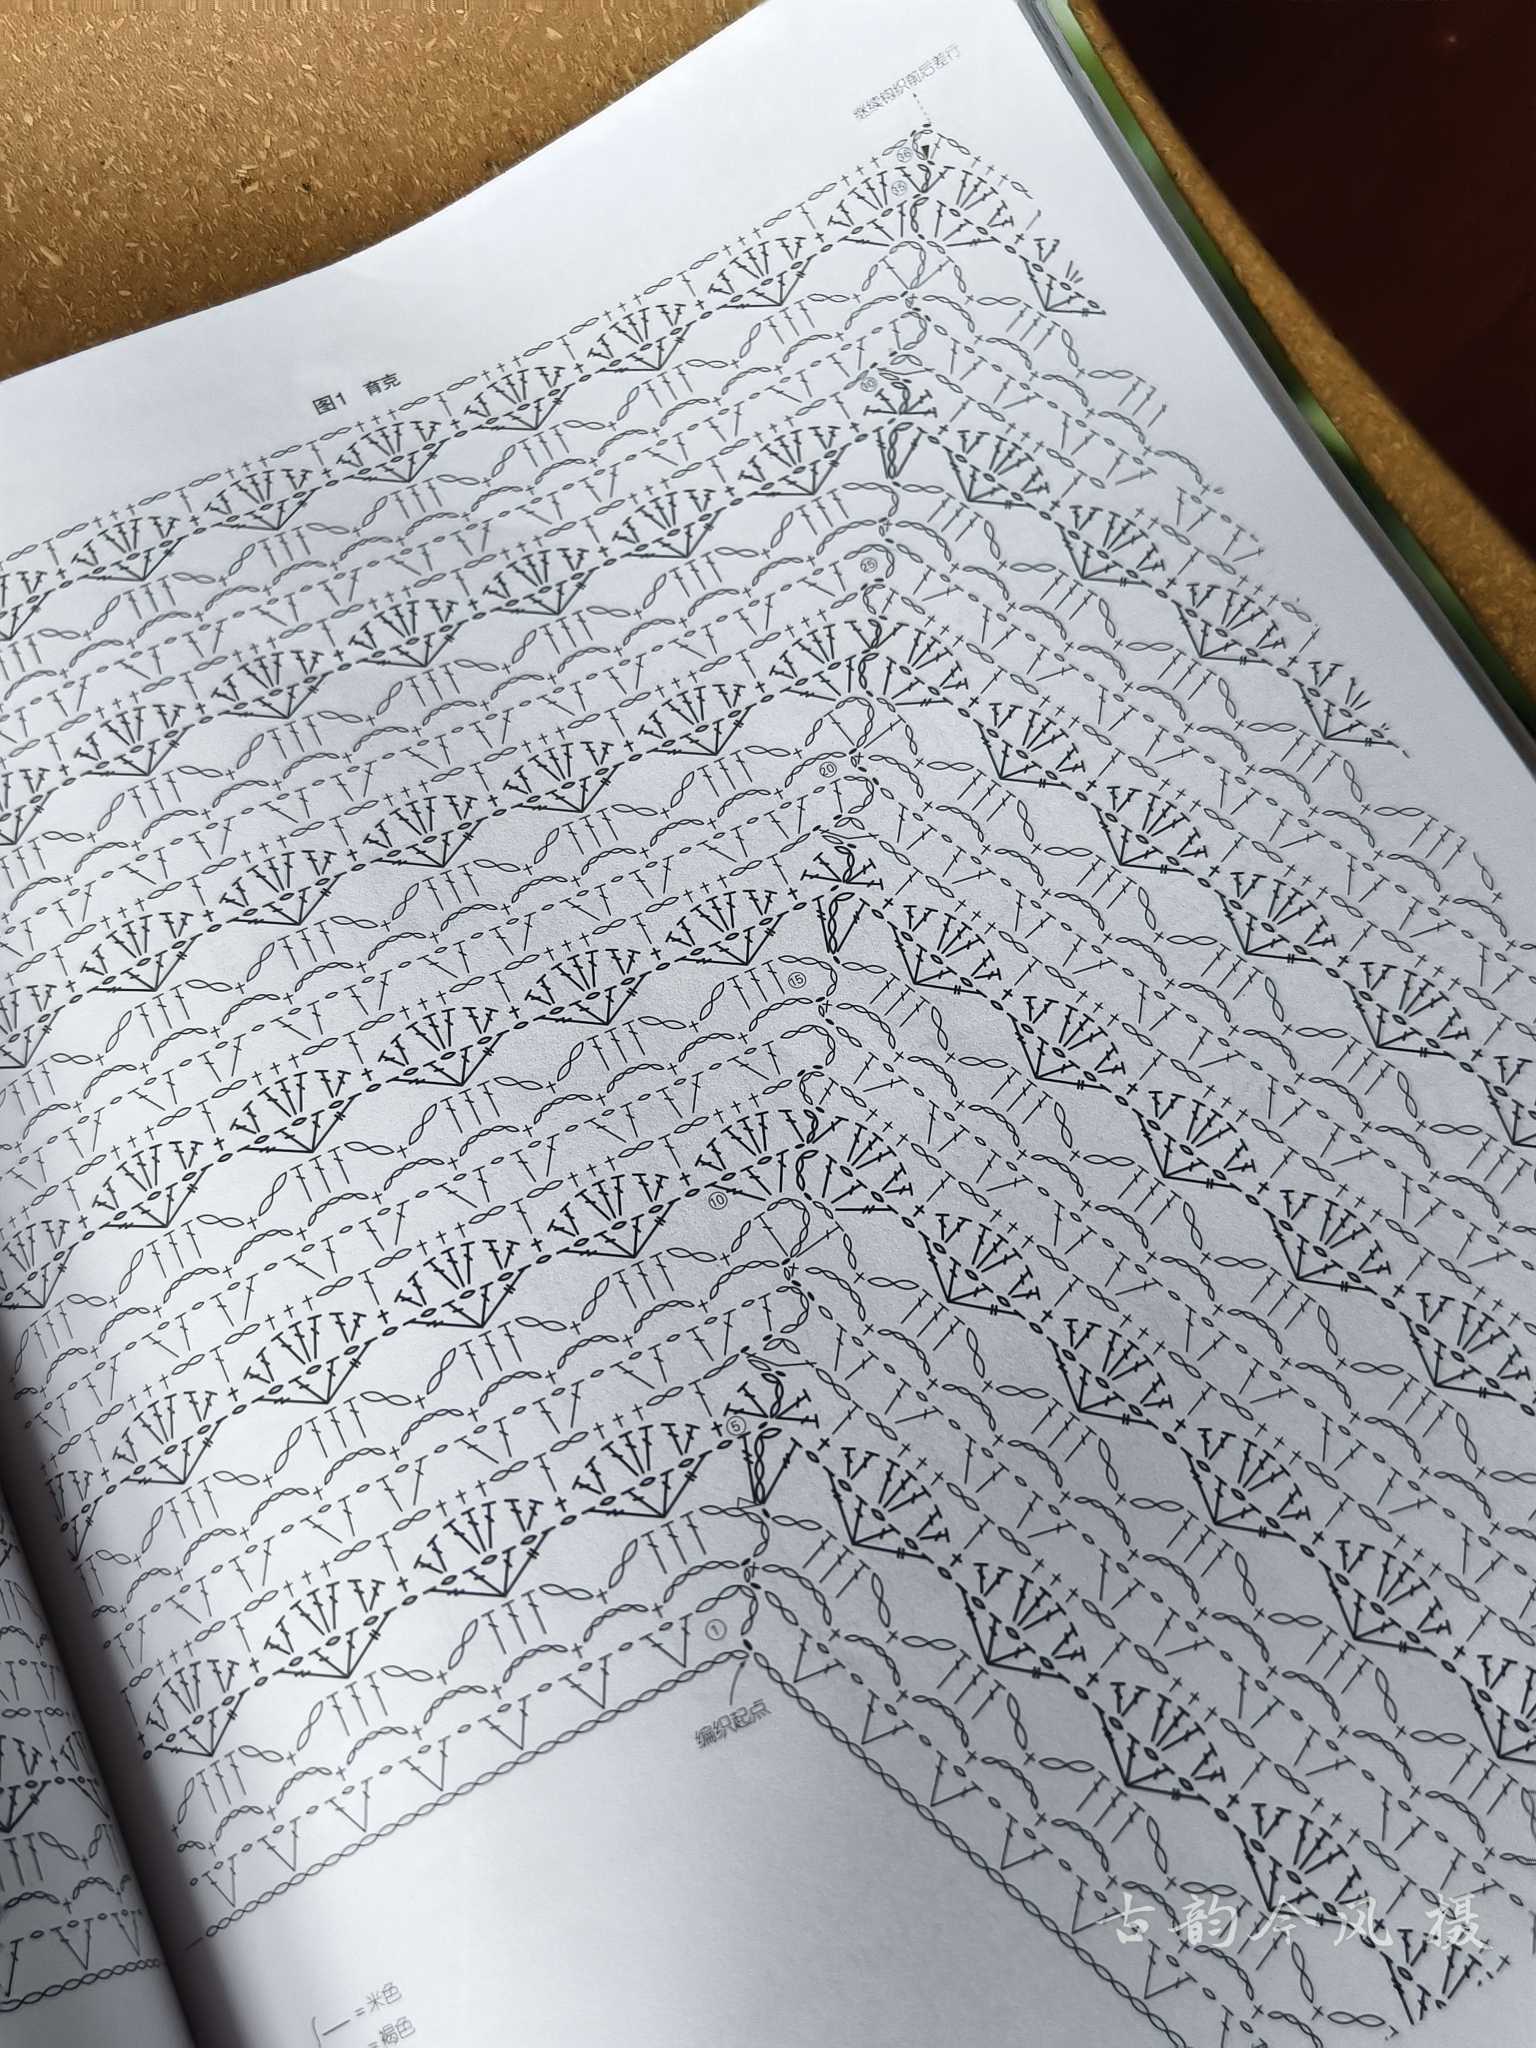 继续钩织前后差行
图1 育克
36
35
30
25
20
15
10
5
1
编织起点
=米色
=褐色
古韵今风 摄